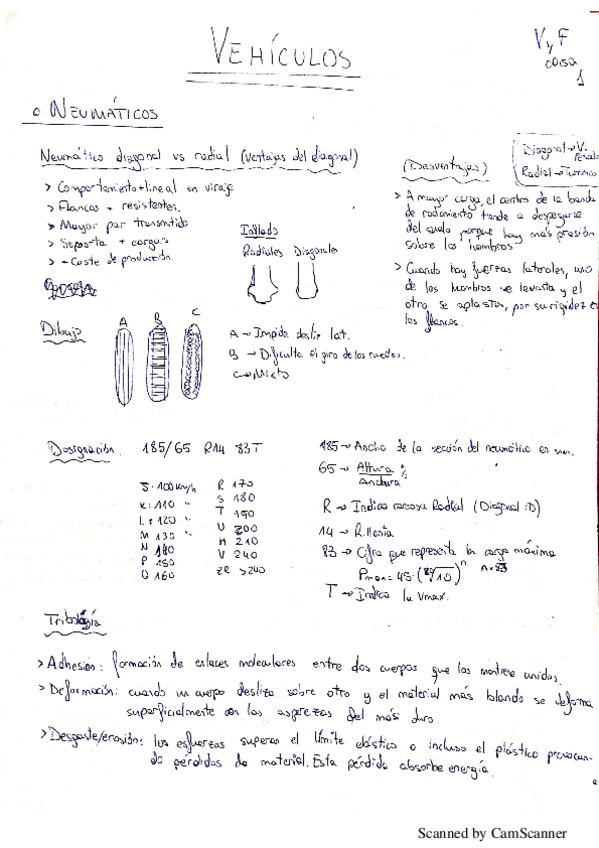 VEHÍCULOS
V y F
cosa
1
o NEUMÁTICOS
Neumático diagonal vs radial (ventajas del diagonal)
> Comportamiento + lineal en viraje
> Flancos + resistentes.
> Mayor par transmitido
> Soporta + cargas
> - Coste de producción.
Inflado
Radiales Diagonales
(Desventajas)
Diagonal → V.
Radial → Turismo
> A mayor carga, el centro de la banda
de rodamiento tiende a despegarse
del suelo porque hay más presión
sobre los hombros
> Cuando hay fuerzas laterales, uno
de los hombros se levanta y el
otro se aplasta, por su rigidez en
los flancos.
Dibujo
A B C
A → Impide desliz lat.
B → Dificulta el giro de las ruedas.
C → Mixto
Designación. 185/65 R14 83T
J: 100 km/h R 170
K: 110 " S 180
L: 120 " T 190
M 130 " U 200
N 140 H 210
P 150 V 240
Q 160 ZR >240
185 → Ancho de la sección del neumático en mm.
65 → Altura / Anchura %
R → Indica carcasa Radial (Diagonal :D)
14 → R. llanta
83 → Cifra que representa la carga máxima
Pmax = 45·(⁸⁰√10)ⁿ n=83
T → Indica la Vmax.
Tribología
> Adhesión: formación de enlaces moleculares entre dos cuerpos que los mantiene unidos.
> Deformación: cuando un cuerpo desliza sobre otro y el material más blando se deforma
superficialmente con las asperezas del más duro.
> Desgaste/erosión: los esfuerzos superan el límite elástico o incluso el plástico provocan-
do pérdidas de material. Esta pérdida absorbe energía.
Scanned by CamScanner